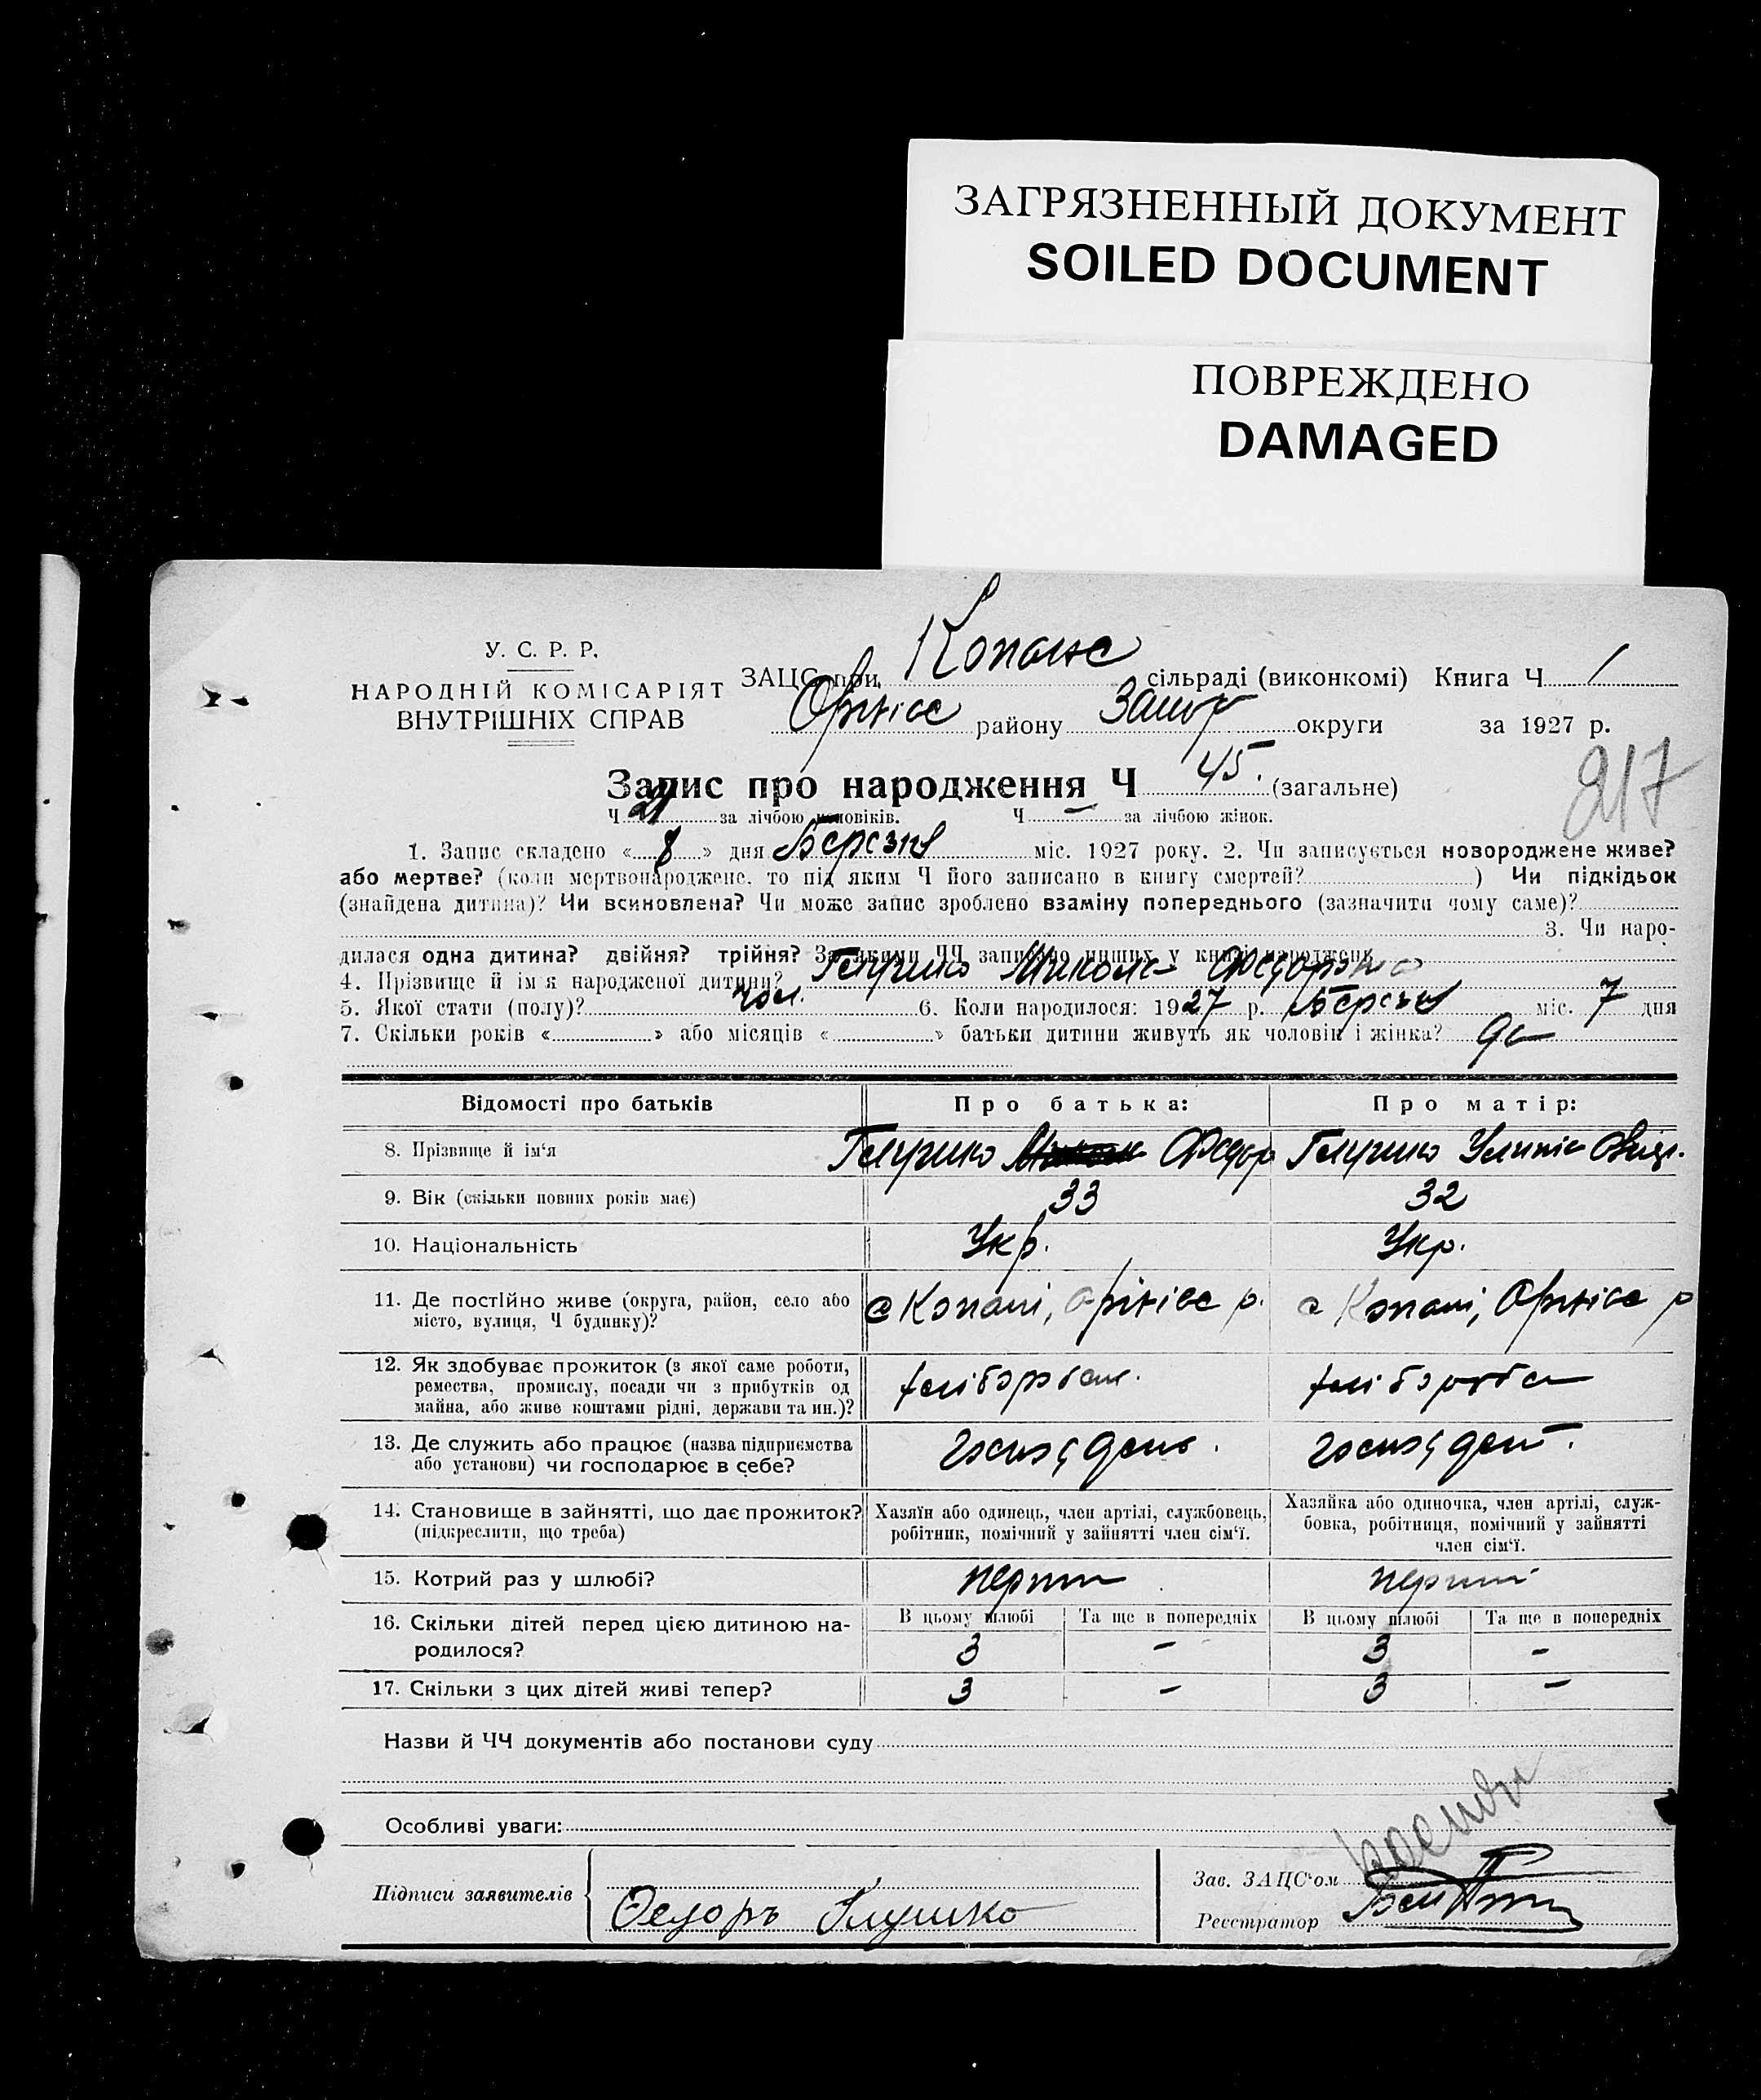 ЗАГРЯЗНЕННЫЙ ДОКУМЕНТ
SOILED DOCUMENT
ПОВРЕЖДЕНО
DAMAGED
У. С. Р. Р.
НАРОДНІЙ КОМІСАРІЯТ
ВНУТРІШНІХ СПРАВ
ЗАЦС при Копане сільраді (виконкомі) Книга Ч 1
Оріхівс району Запор округи за 1927 р.
Запис про народження Ч 45. (загальне)
217
Ч 21 за лічбою чоловіків. Ч — за лічбою жінок.
1. Запис складено « 8 » дня Березня міс. 1927 року. 2. Чи записується новороджене живе?
або мертве? (коли мертвонароджене, то під яким Ч його записано в книгу смертей? ) Чи підкідьок
(знайдена дитина)? Чи всиновлена? Чи може запис зроблено взаміну попереднього (зазначити чому саме)?
3. Чи наро-
дилася одна дитина? двійня? трійня? За якими ЧЧ записано инших у книзі народжень
4. Прізвище й ім'я народженої дитини? Глушко Микола Федоров
5. Якої стати (полу)? чол. 6. Коли народилося: 1927 р. Березня міс. 7 дня
7. Скільки років « » або місяців « » батьки дитини живуть як чоловік і жінка?
Відомості про батьків Про батька: Про матір:
8. Прізвище й ім'я Глушко Федор Глушко Улита
9. Вік (скільки повних років має) 33 32
10. Національність Укр. Укр.
11. Де постійно живе (округа, район, село або
місто, вулиця, Ч будинку)? с Копані, Оріхівс р. с Копані, Оріхівс р
12. Як здобуває прожиток (з якої саме роботи,
ремества, промислу, посади чи з прибутків од
майна, або живе коштами рідні, держави та ин.)? хліборобств. хлібороб
13. Де служить або працює (назва підприємства
або установи) чи господарює в себе?
14. Становище в зайнятті, що дає прожиток?
(підкреслити, що треба)
Хазяїн або одинець, член артілі, службовець,
робітник, помічний у зайнятті член сім'ї.
Хазяйка або одиночка, член артілі, служ-
бовка, робітниця, помічний у зайнятті
член сім'ї.
15. Котрий раз у шлюбі? перший перший
16. Скільки дітей перед цією дитиною на-
родилося?
В цьому шлюбі Та ще в попередніх В цьому шлюбі Та ще в попередніх
3 — 3 —
17. Скільки з цих дітей живі тепер? 3 — 3 —
Назви й ЧЧ документів або постанови суду
Особливі уваги:
Підписи заявителів
Ѳедоръ Глушко
Зав. ЗАЦС'ом
Реєстратор